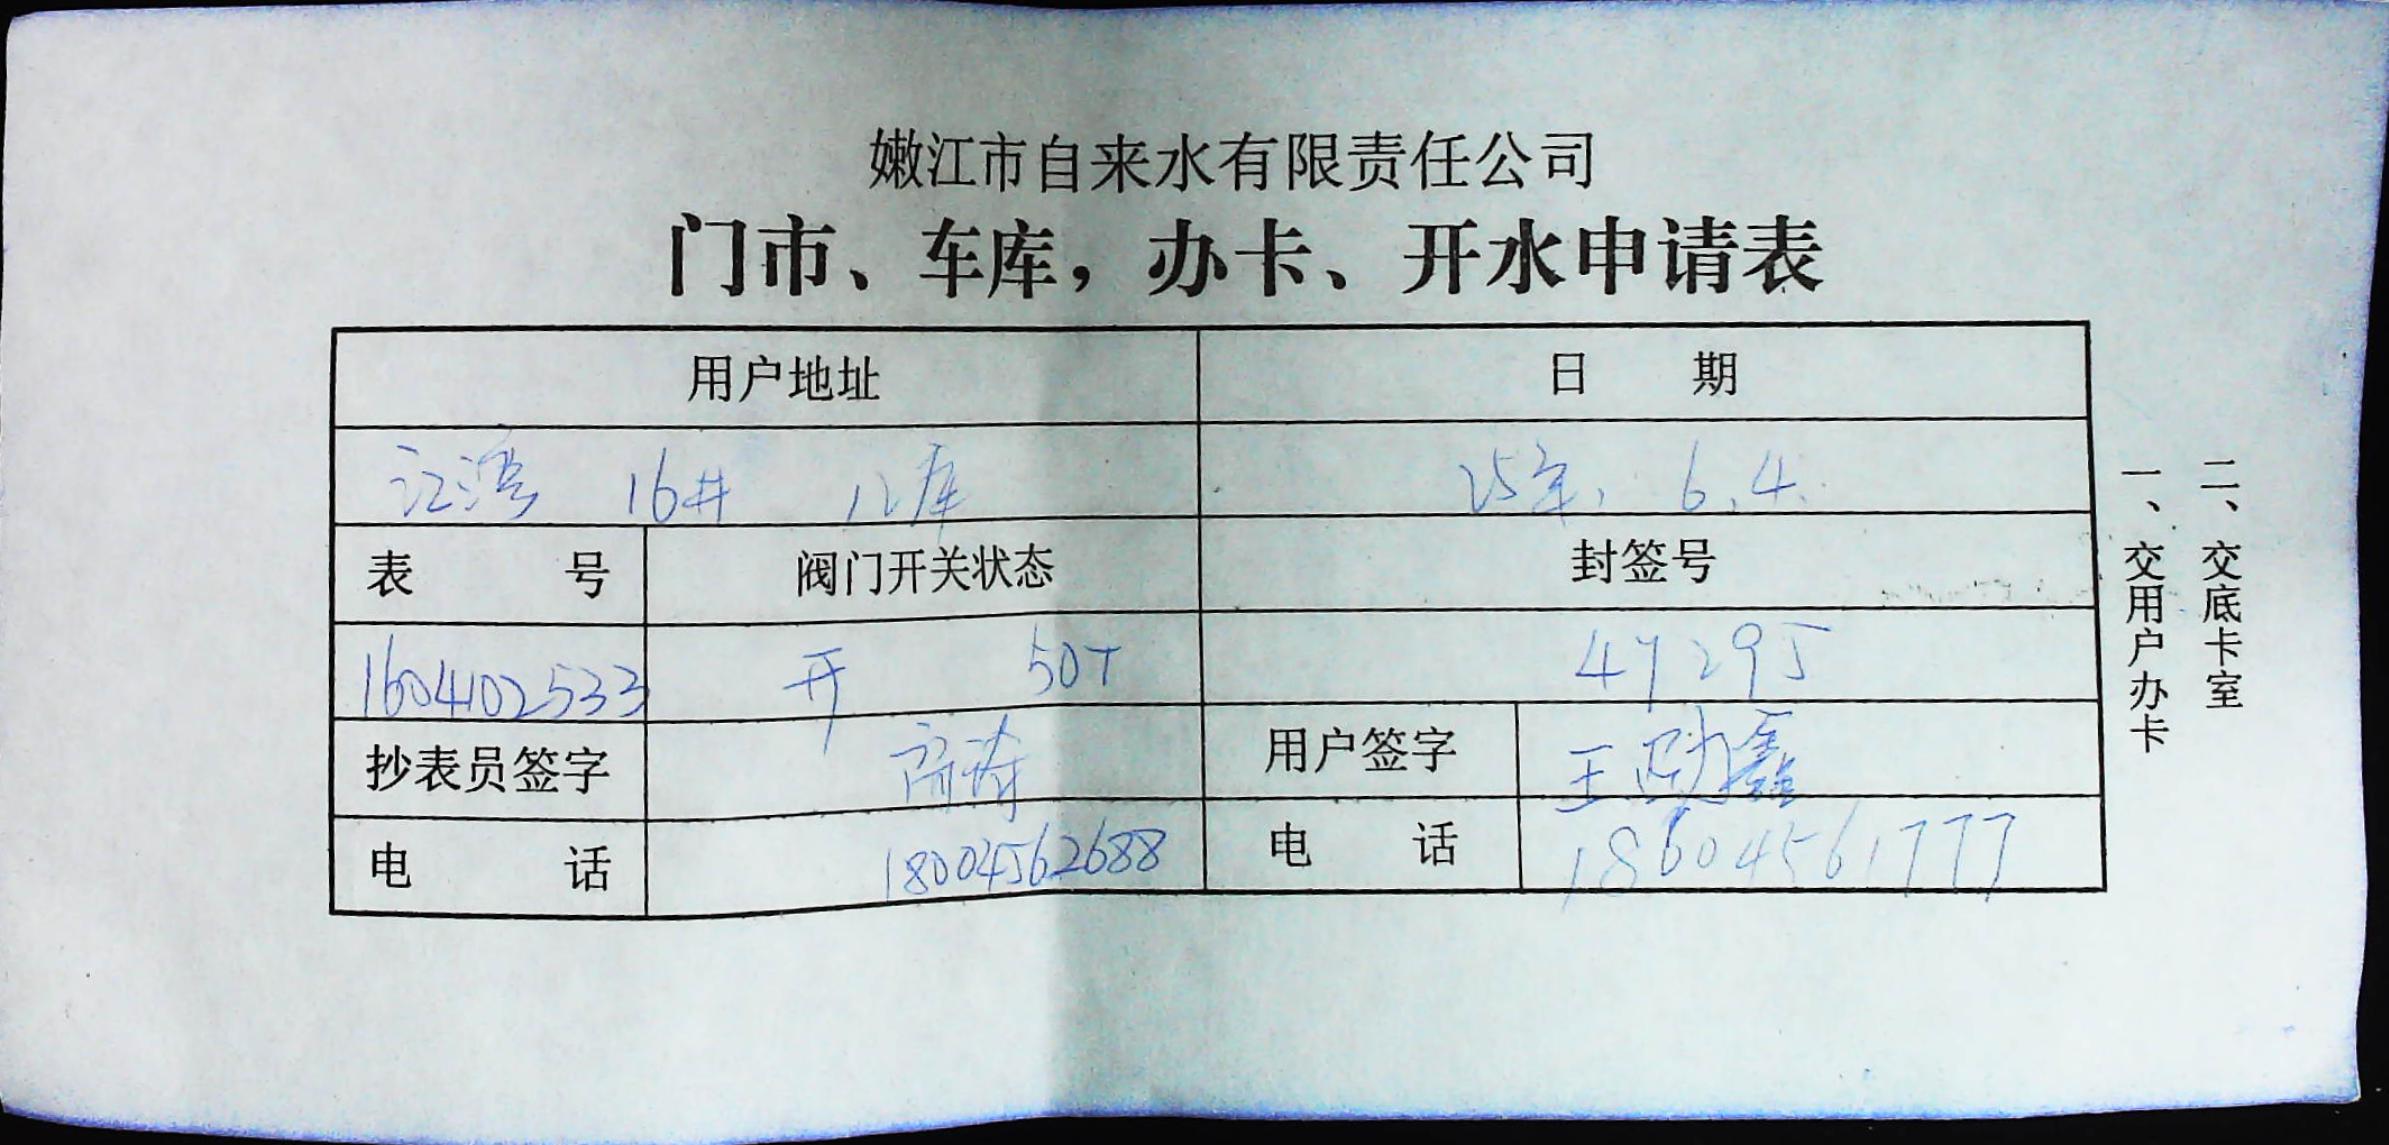 嫩江市自来水有限责任公司
门市、车库，办卡、开水申请表
用户地址 日 期
江湾 16# 12库 25年. 6.4.
表 号 阀门开关状态 封签号
1604102533 开 50T 47295
抄表员签字 齐涛 用户签字 王 鑫
电 话 18004562688 电 话 18604561777
一、交用户办卡
二、交底卡室